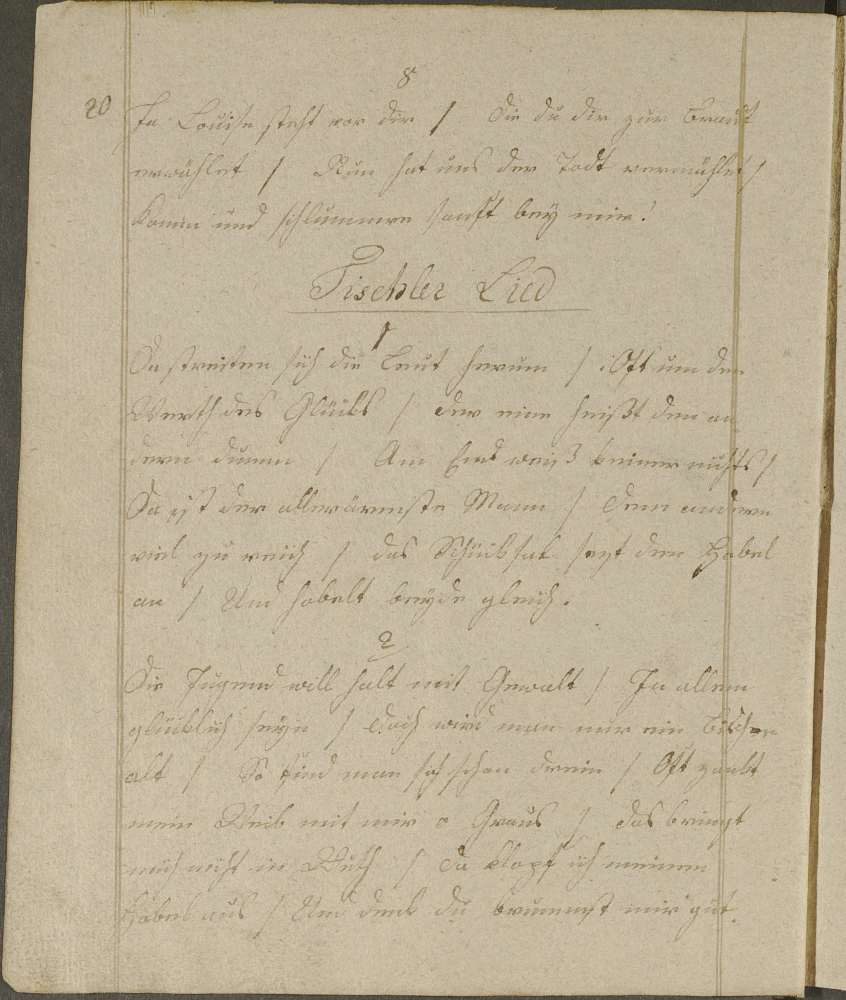 8
20 Ja Louise steht vor dir / Die du dir zur Braut
erwählet / Nun hat uns der Todt vermählet /
Komm und schlummre sanft bey mir!
Tischler Lied
1
Da streiten sich die Leut herum / Oft um den
Werth des Glücks / der eine heißt den an
dern dumm / Am End weiß keiner nichts /
Da ist der allerärmste Mann / dem andern
viel zu reich / das Schicksal sezt den Hobel
an / Und hobelt beyde gleich.
2
Die Jugend will halt mit Gewalt / In allem
glücklich seyn / doch wird man nur ein Bischen
alt / So find man sich schon drein / Oft zankt
mein Weib mit mir o Graus / das bringt
mich nicht in Wuth / da klopf ich meinen
Hobel aus / Und denk du brummst mir gut.